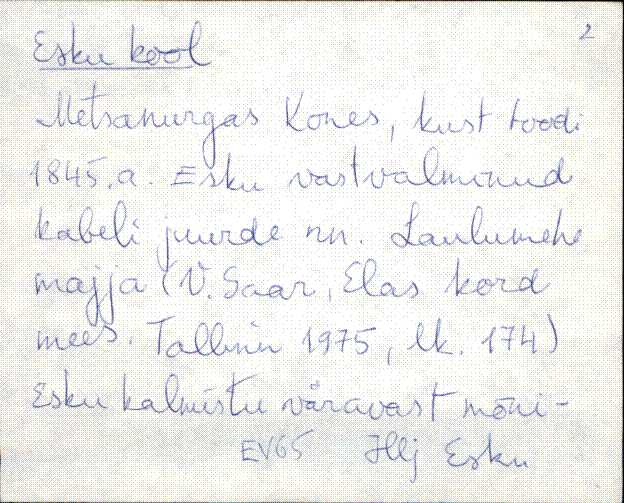 2
Esku kool
Metsanurgas Kones, kust toodi
1845. a. Esku vastvalminud
kabeli juurde nn. Laulumehe
majja (V. Saar, Elas kord
mees. Tallinn 1975, lk. 174)
Esku kalmistu väravast mõni-
EV65 Hlj Esku